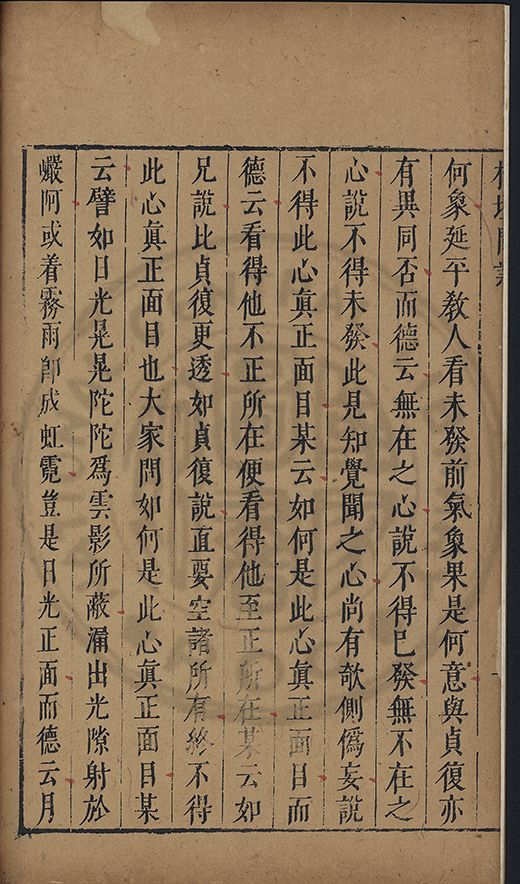 何象延平教人看未發前氣象果是何意與貞復亦
有異同否而德云無在之心說不得已發無不在之
心說不得未發此見知覺聞之心尚有欹側僞妄說
不得此心真正面目某云如何是此心真正面目而
德云看得他不正所在便看得他至正所在某云如
兄說比貞復更透如貞復說直要空諸所有終不得
此心真正面目也大家問如何是此心真正面目某
云譬如日光晃晃陀陀爲雲影所蔽漏出光隙射於
巖阿或着霧雨卽成虹霓豈是日光正面而德云月